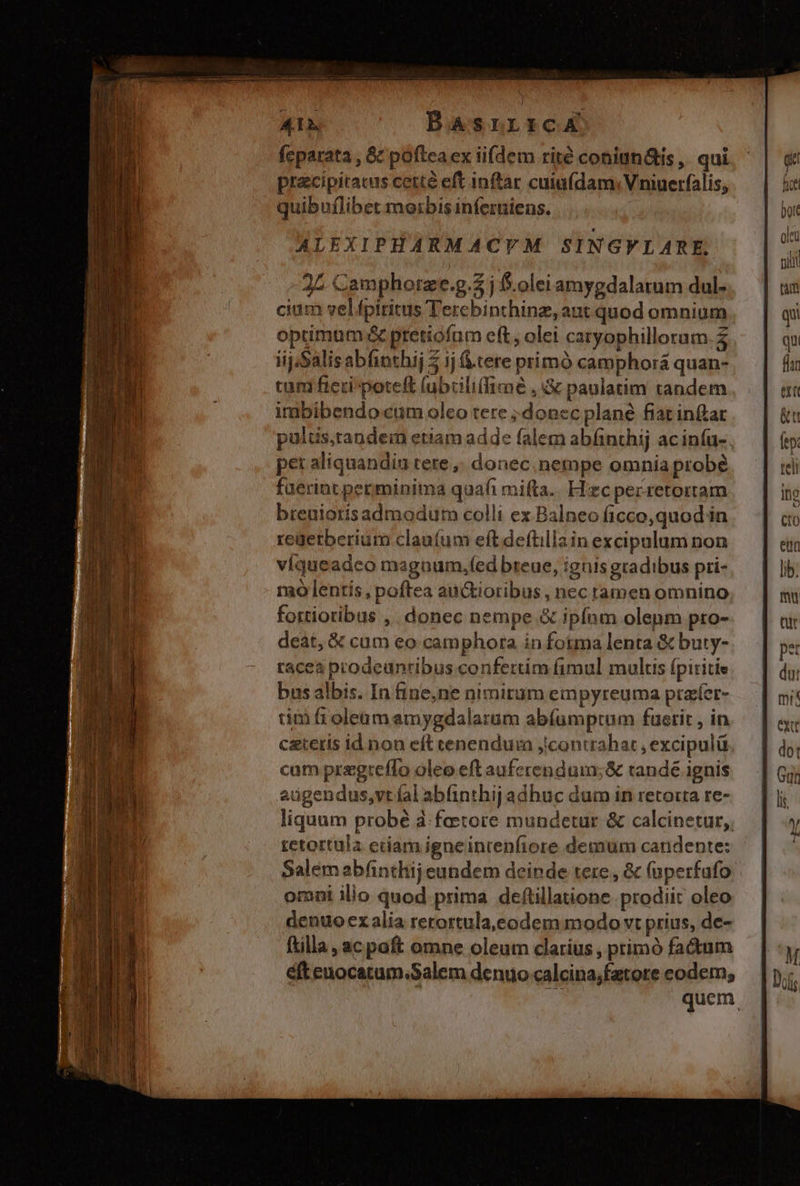 BASILICA
ſeparata, & poſtea ex iiſdem ritè coniunctis, qui
præcipitatus certè eſt inſtar cuiuſdam Vniuerſalis,
quibuſlibet morbis inſeruiens.
ALEXIPHARMACVM SINGVLARE.
♃ Camphoræ e.g. ℥ j ß. olei amygdalarum dul-
cium vel ſpiritus Terebinthinæ, aut quod omnium
optimum & pretioſum eſt, olei caryophillorum. ℥
iij. Salis abſinthij ℥ ij ß. tere primò camphorá quan-
tum fieri poteſt ſubtiliſſimè, & paulatim tandem
imbibendo cum oleo tere, donec planè fiat inſtar
pultis, tandem etiam adde ſalem abſinthij ac inſu-
per aliquandiu tere, donec nempe omnia probè
fuerint per minima quaſi miſta. Hæc per retortam
breuioris admodum colli ex Balneo ſicco, quod in
reuerberium clauſum eſt deſtilla in excipulum non
vſque adeo magnum, ſed breue, ignis gradibus pri-
mò lentis, poſtea auctioribus, nec tamen omnino
fortioribus, donec nempe & ipſum oleum pro-
deat, & cum eo camphora in forma lenta & buty-
racea prodeuntibus confertim ſimul multis ſpiriti-
bus albis. In fine, ne nimirum empyreuma præſer-
tim ſi oleum amygdalarum abſumptum fuerit, in
cæteris id non eſt tenendum, contrahat, excipulū
cum prægreſſo oleo eſt auferendum; & tandē ignis
augendus, vt ſal abſinthij adhuc dum in retorta re-
liquum probè à fœtore mundetur & calcinetur,
retortula etiam igne intenſiore demum candente:
Salem abſinthij eundem deinde tere, & ſuperfuſo
omni illo quod prima deſtillatione prodiit oleo
denuo ex alia retortula, eodem modo vt prius, de-
ſtilla, ac poſt omne oleum clarius, primò factum
eſt euocatum. Salem denuo calcina, fætore eodem,
quem